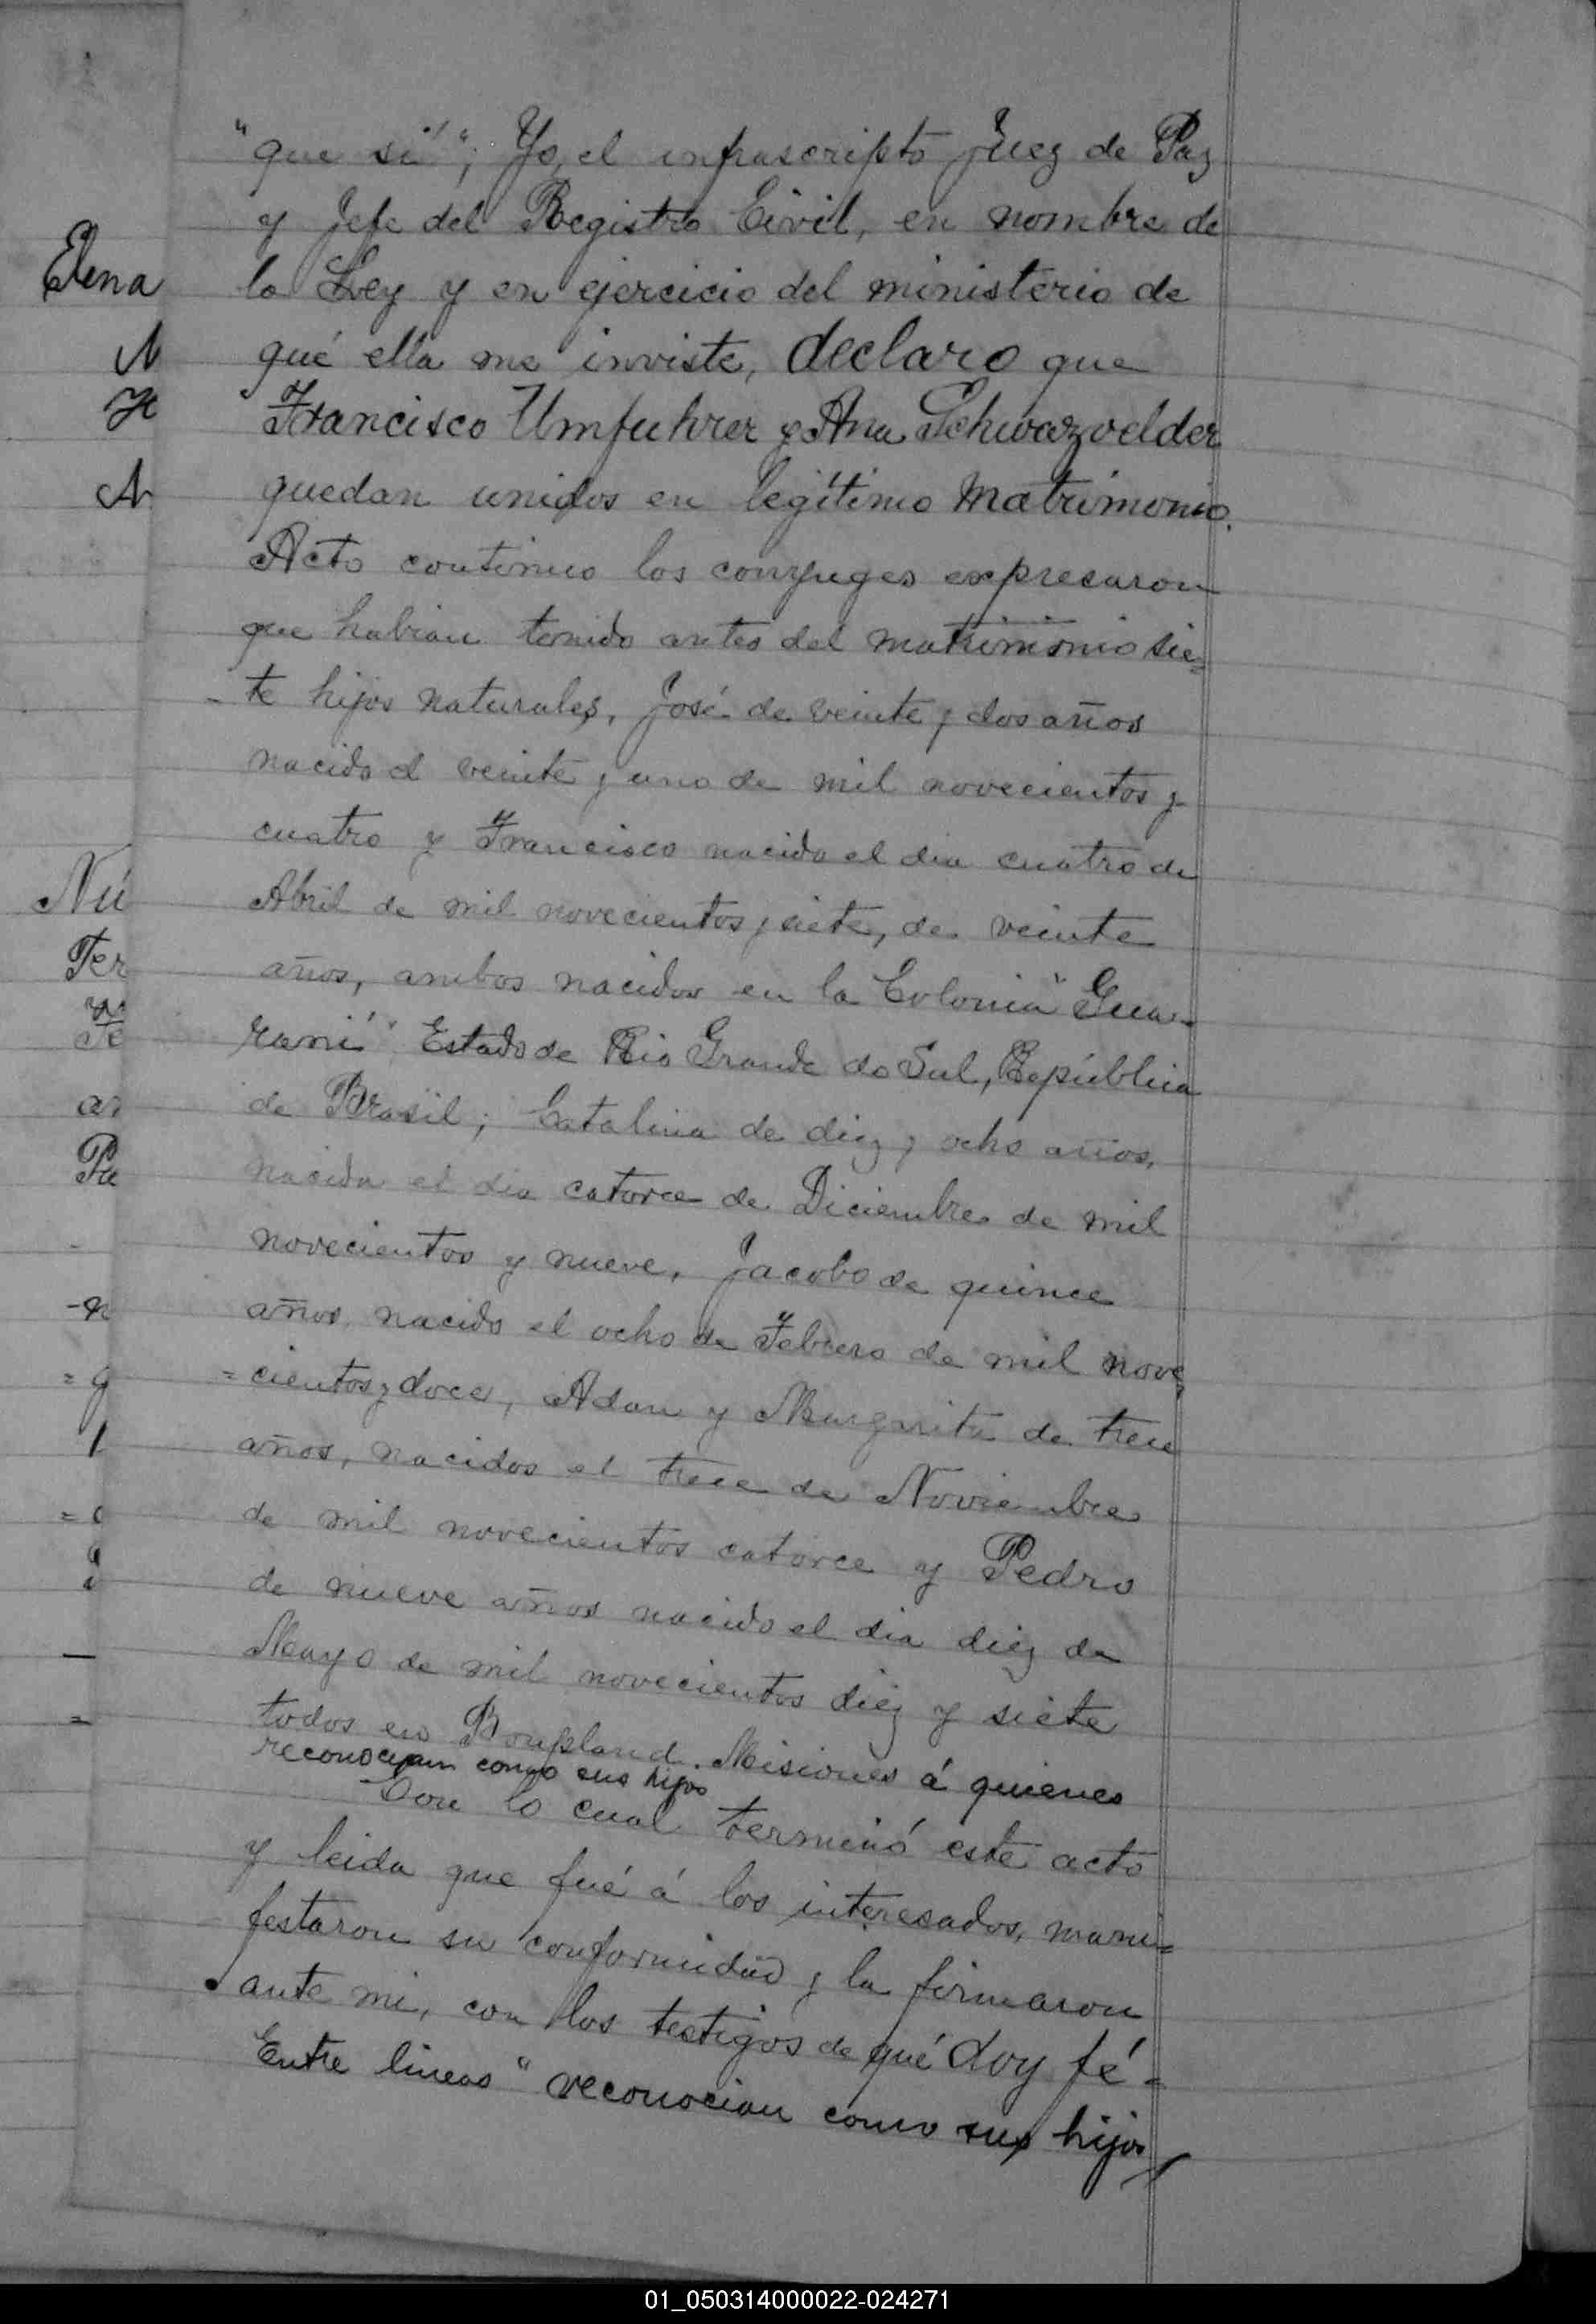 Elena
Nú
Ter
"que si"; Yo, el infrascripto Juez de Paz
y Jefe del Registro Civil, en nombre de
la Ley y en ejercicio del ministerio de
qué ella me inviste, declaro que
Francisco Umfuhrer y Ana Schwazvelder
quedan unidos en legítimo Matrimonio.
Acto continuo los conyuges expresaron
que habian tenido antes del matrimonio sie=
-te hijos naturales, José de veinte y dos años
nacido el veinte y uno de mil novecientos y
cuatro y Francisco nacido el dia cuatro de
Abril de mil novecientos y siete, de veinte
años, ambos nacidos en la Colonia "Gua-
raní" Estado de Rio Grande do Sul, República
de Brasil; Catalina de diez y ocho años,
nacida el dia catorce de Diciembre de mil
novecientos y nueve, Jacobo de quince
años, nacido el ocho de Febrero de mil nove
=cientos y doce, Adan y Margarita de trece
años, nacidos el trece de Noviembre
de mil novecientos catorce y Pedro
de nueve años nacido el dia diez de
Mayo de mil novecientos diez y siete
todos en Bonpland. Misiones á quienes
reconocian como sus hijos
Con lo cual terminó este acto
y leida que fué á los interesados, mani=
festaron su conformidad y la firmaron
ante mi, con los testigos de qué doy fé-
Entre lineas "reconocian como sus hijos
01_050314000022-024271